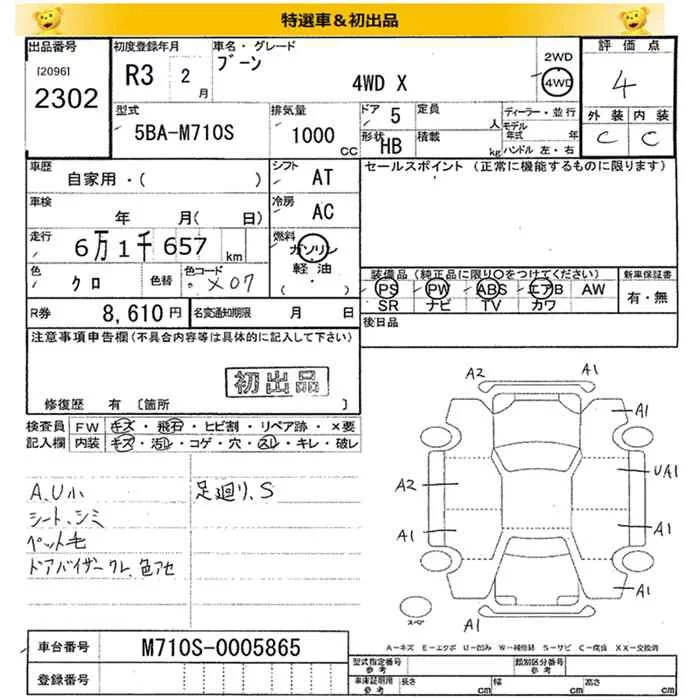 特選車＆初出品
出品番号
[2096]
2302
初度登録年月
R3 2月
車名・グレード
ブーン
4WD X
2WD
4WD
評価点
4
外装 内装
C C
型式
5BA-M710S
排気量
1000 CC
ドア 5
定員 人
形状 HB
積載 kg
ディーラー・並行
モデル年式 年
ハンドル 左・右
車歴
自家用・( )
シフト
AT
セールスポイント (正常に機能するものに限ります)
車検
年 月( 日)
冷房
AC
走行
6万1千657 km
燃料
ガソリン
軽油
( ・ )
色
クロ
色替
色コード
X07
装備品 (純正品に限り○をつけてください)
PS PW ABS エアB AW
SR ナビ TV カワ
新車保証書
有・無
R券 8,610円
名変通知期限 月 日
後日品
注意事項申告欄(不具合内容等は具体的に記入して下さい)
初出品
修復歴 有 〔箇所 〕
検査員記入欄
FW キズ・飛石・ヒビ割・リペア跡・×要
内装 キズ・汚レ・コゲ・穴・スレ・キレ・破レ
A、U小
シート、シミ
ペット毛
ドアバイザー クレ、色アセ
足廻り、S
A2 A1
A1
A2 UA1
A1 A1
A1
A1
スペア
A=キズ E=エクボ U=凹み W=補修跡 S=サビ C=腐食 XX=交換済
車台番号 M710S-0005865
登録番号
型式指定番号 参考
類別区分番号 参考
車庫証明用 参考
長さ cm 幅 cm 高さ cm